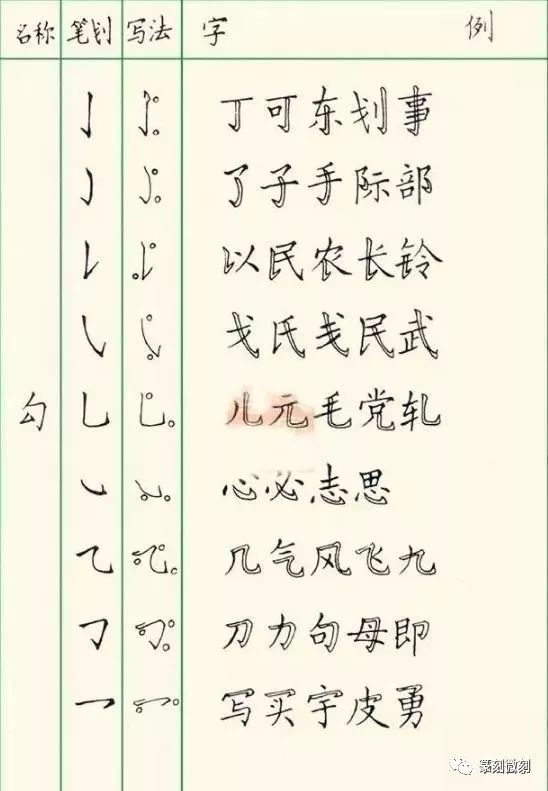 名称 笔划 写法 字 例
丁可东划事
了子手际部
以民农长铃
戈氏戋民武
勾 儿元毛党轧
心必志思
几气风飞九
刀力句母即
写买宇皮勇
篆刻微刻